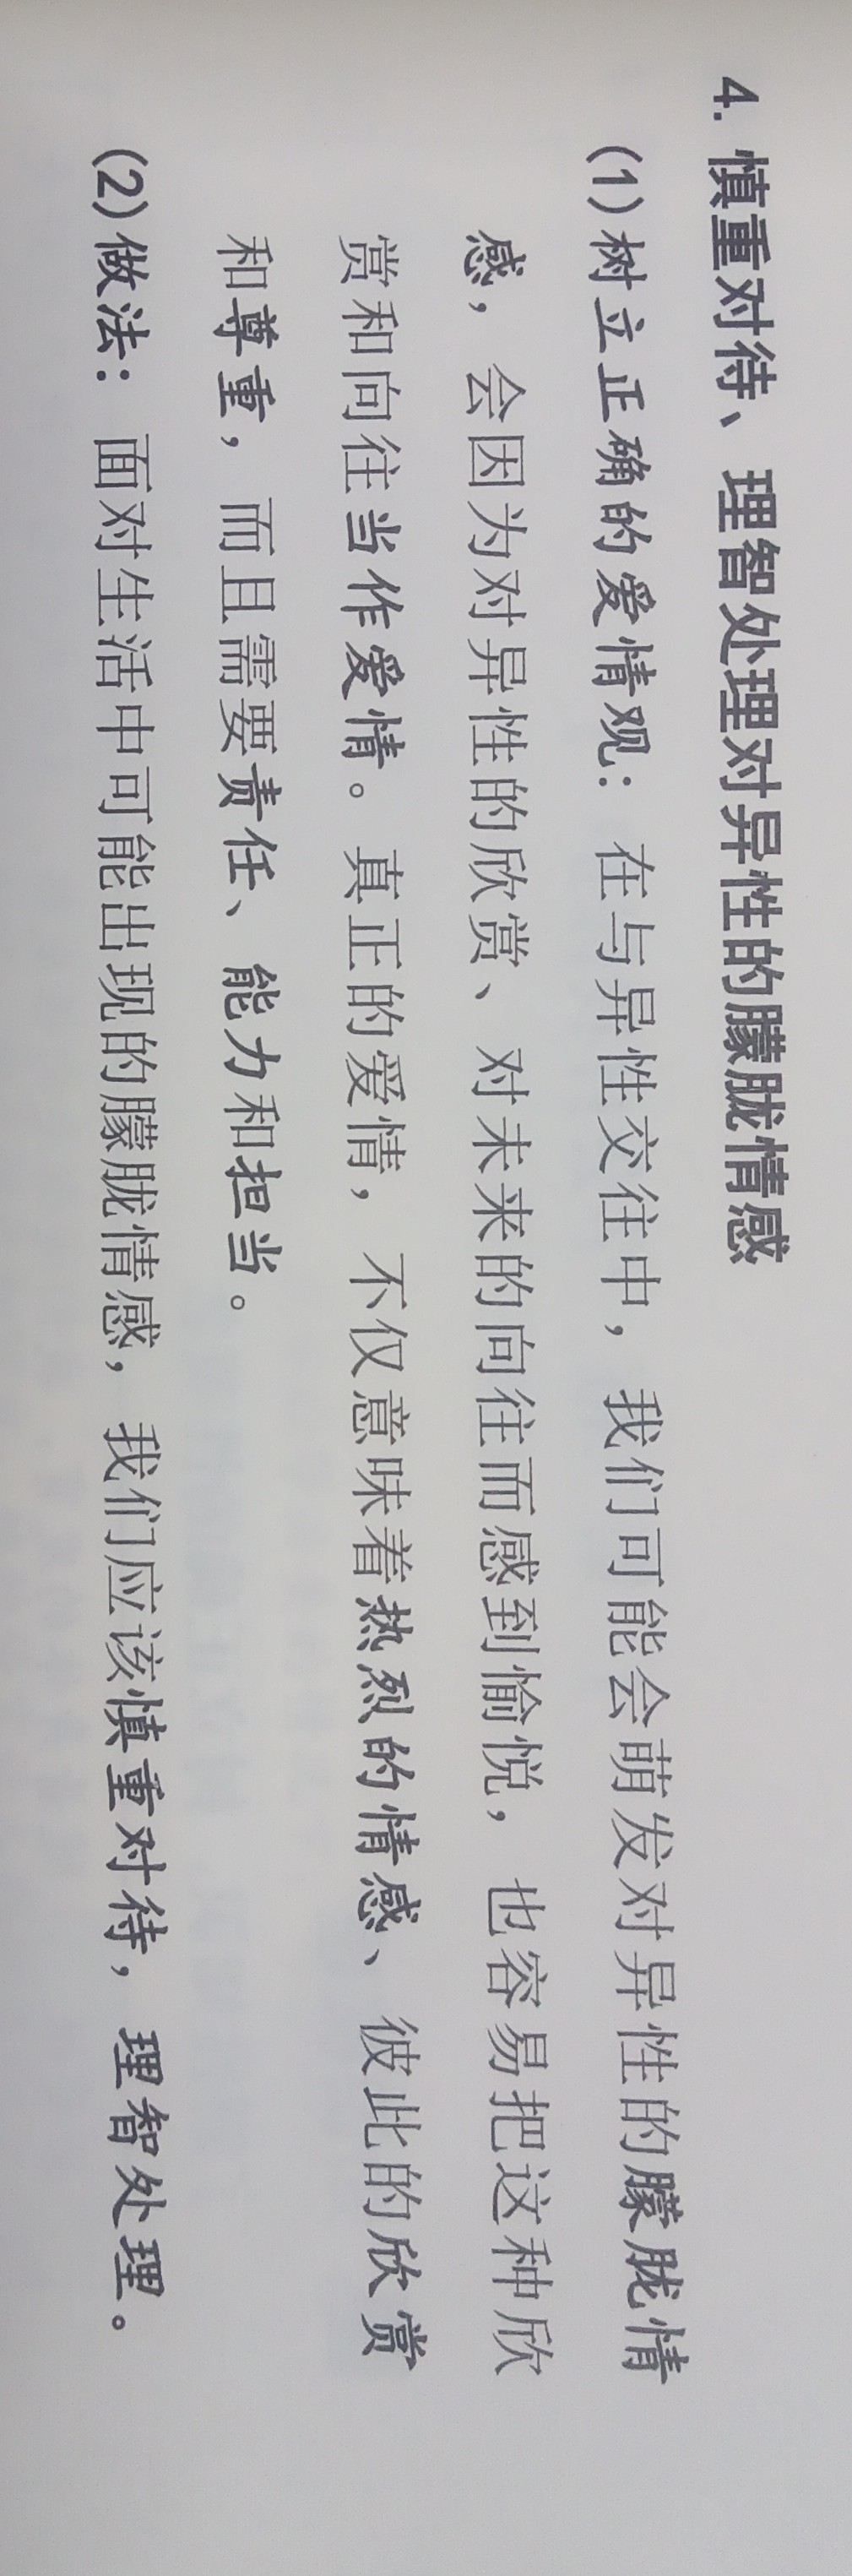 4. 慎重对待、理智处理对异性的朦胧情感
(1)树立正确的爱情观：在与异性交往中，我们可能会萌发对异性的朦胧情
感，会因为对异性的欣赏、对未来的向往而感到愉悦，也容易把这种欣
赏和向往当作爱情。真正的爱情，不仅意味着热烈的情感、彼此的欣赏
和尊重，而且需要责任、能力和担当。
(2)做法：面对生活中可能出现的朦胧情感，我们应该慎重对待，理智处理。